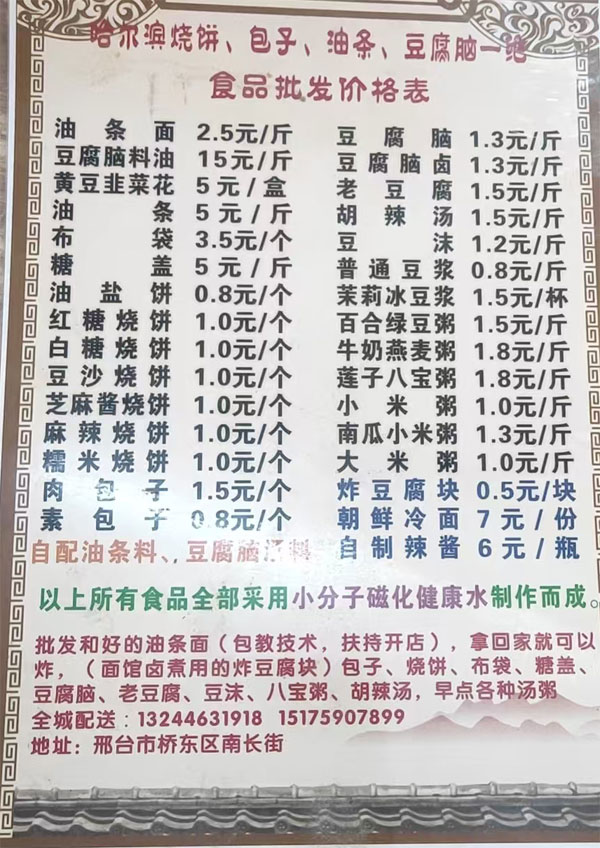 哈尔滨烧饼、包子、油条、豆腐脑一绝
食品批发价格表
油条面 2.5元/斤
豆腐脑料油 15元/斤
黄豆韭菜花 5元/盒
油条 5元/斤
布袋 3.5元/个
糖盖 5元/斤
油盐饼 0.8元/个
红糖烧饼 1.0元/个
白糖烧饼 1.0元/个
豆沙烧饼 1.0元/个
芝麻酱烧饼 1.0元/个
麻辣烧饼 1.0元/个
糯米烧饼 1.0元/个
肉包子 1.5元/个
素包子 0.8元/个
自配油条料、豆腐脑
豆腐脑 1.3元/斤
豆腐脑卤 1.3元/斤
老豆腐 1.5元/斤
胡辣汤 1.5元/斤
豆沫 1.2元/斤
普通豆浆 0.8元/斤
茉莉冰豆浆 1.5元/杯
百合绿豆粥 1.5元/斤
牛奶燕麦粥 1.8元/斤
莲子八宝粥 1.8元/斤
小米粥 1.0元/斤
南瓜小米粥 1.3元/斤
大米粥 1.0元/斤
炸豆腐块 0.5元/块
朝鲜冷面 7元/份
自制辣酱 6元/瓶
以上所有食品全部采用小分子磁化健康水制作而成。
批发和好的油条面（包教技术，扶持开店），拿回家就可以
炸，（面馆卤煮用的炸豆腐块）包子、烧饼、布袋、糖盖、
豆腐脑、老豆腐、豆沫、八宝粥、胡辣汤，早点各种汤粥
全城配送：13244631918 15175907899
地址：邢台市桥东区南长街